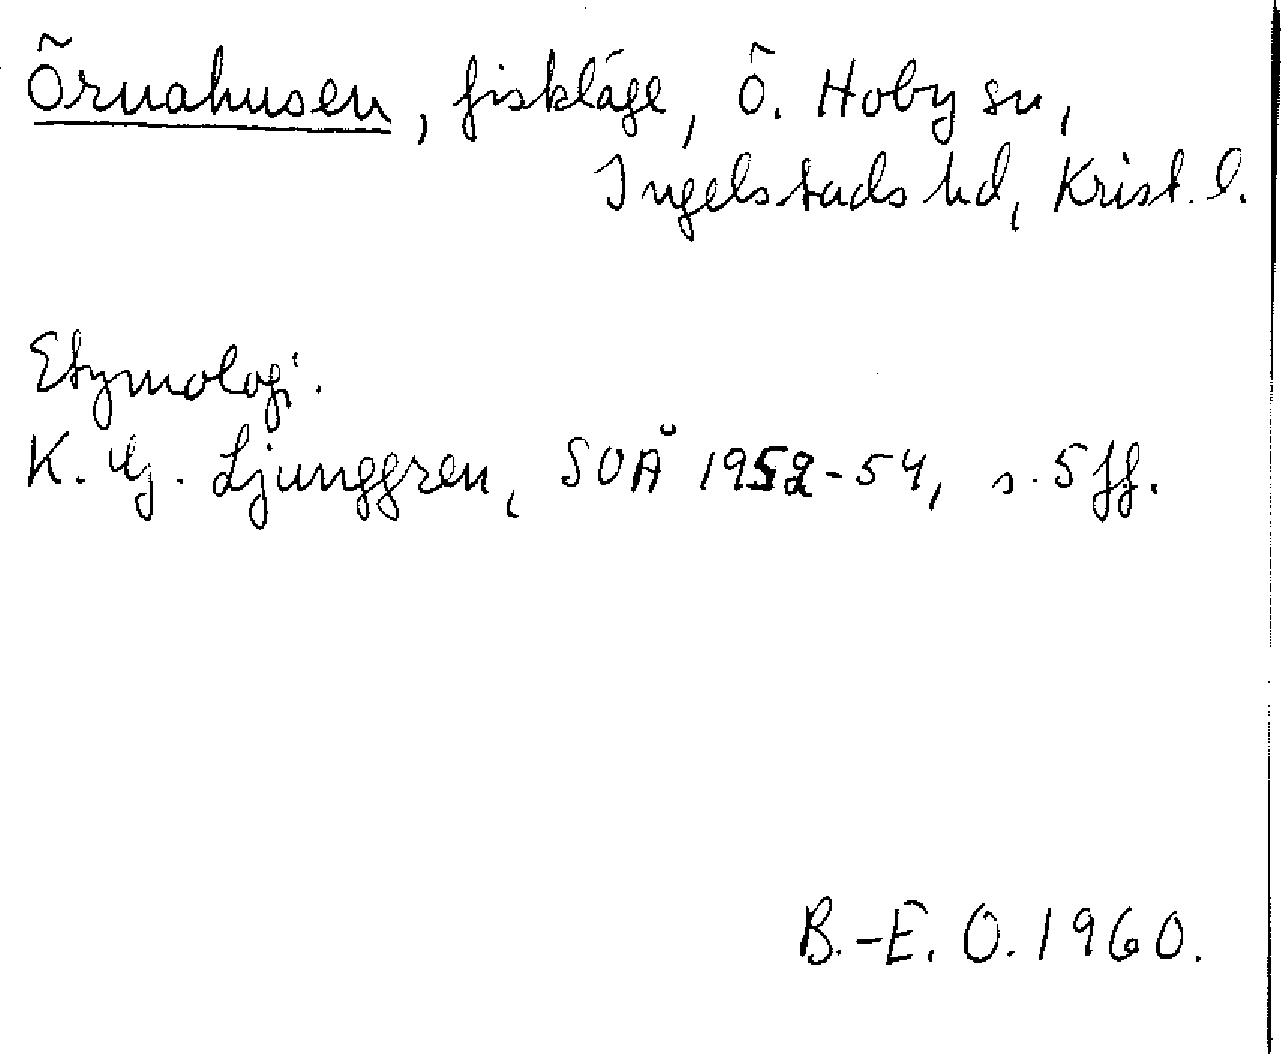 Örnahusen, fiskläge, Ö. Hoby sn,
Ingelstads hd, Krist. l.
Etymologi.
K. G. Ljunggren, SOÅ 1952-54, s. 5 ff.
B.-E. O. 1960.